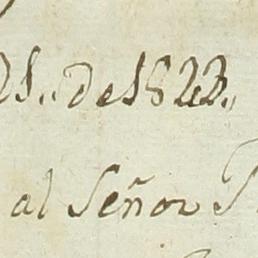 21,, de 1822,,
al Señor